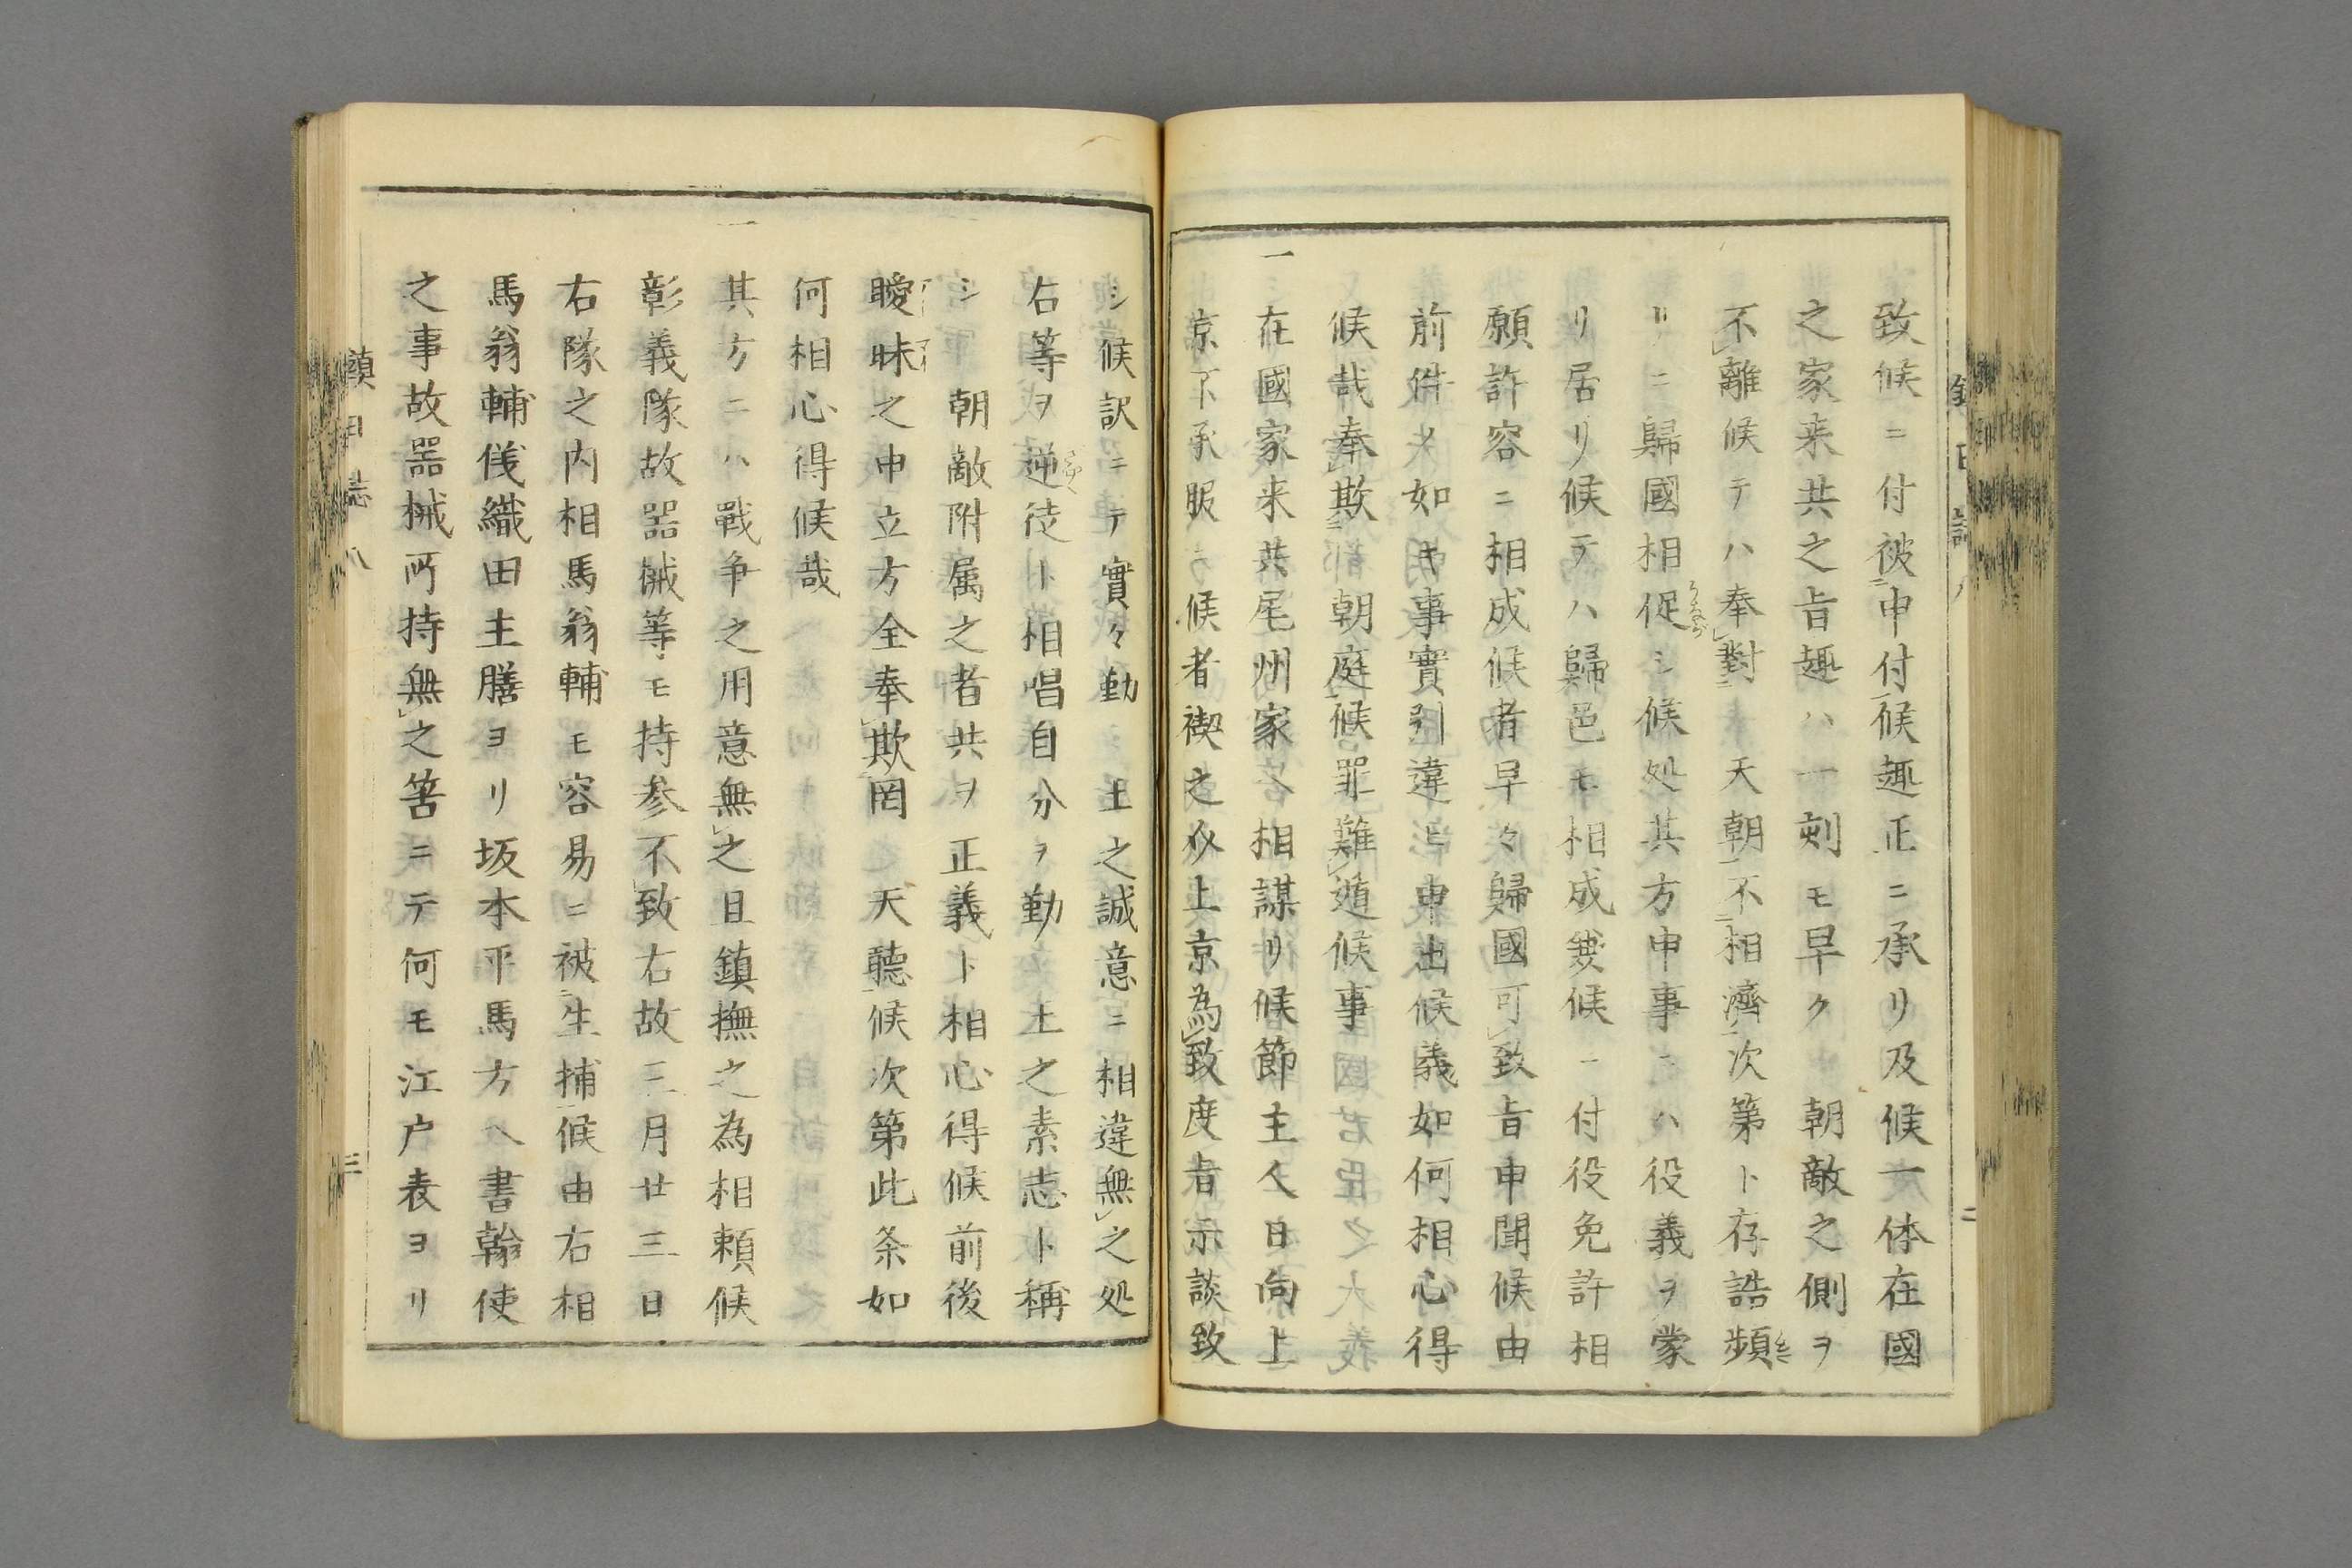 致候ニ付被申付候趣正ニ承リ及候一体在國
之家来共之旨趣ハ一刻モ早ク 朝敵之側ヲ
不離候テハ奉對 天朝不相濟次第ト存詰頻
リニ歸國相促シ候処其方申事ニハ役義ヲ蒙
リ居リ候テハ歸邑モ相成兼候ニ付役免許相
願許容ニ相成候者早々歸國可致旨申聞候由
前件ノ如キ事實引違ヒ申出候義如何相心得
候哉奉欺朝庭候罪難遁候事
一 在國家来共尾州家相謀リ候節主人日向上
京不承服ニ候者禊之必上京為致度旨示談致
シ候訳ニテ實々勤 王之誠意ニ相違無之処
右等ヲ逆徒ト相唱自分ヲ勤 王之素志ト稱
シ 朝敵附属之者共ヲ正義ト相心得候前後
曖昧之申立方全奉欺罔 天聽候次第此条如
何相心得候哉
一 其方ニハ戰争之用意無之且鎮撫之為相頼候
彰義隊故器械等モ持参不致右故三月廿三日
右隊之内相馬翁輔モ容易ニ被生捕候由右相
馬翁輔儀織田主膳ヨリ坂本平馬方ヘ書翰使
之事故器械所持無之筈ニテ何モ江户表ヨリ
鎮日誌八
三